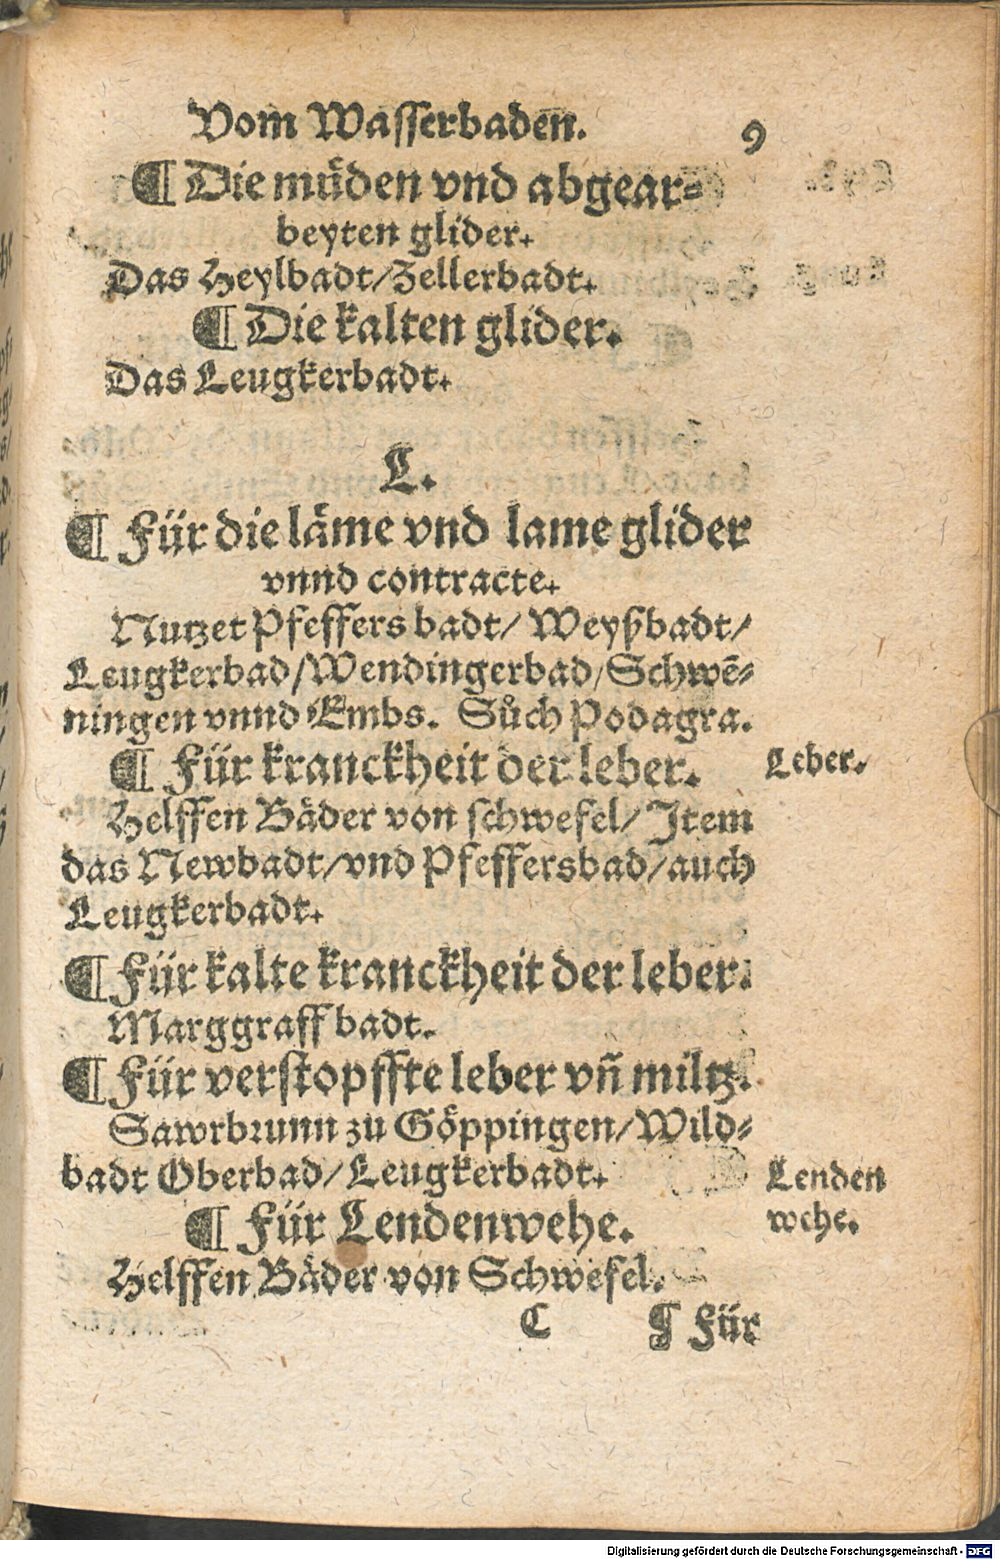 Vom Wasserbadeñ.
9
¶ Die müden vnd abgear⸗
beyten glider.
Das Heylbadt/Zellerbadt.
¶ Die kalten glider.
Das Leugkerbadt.
L.
¶ Für die läme vnd lame glider
vnnd contracte.
Nutzet Pfeffers badt/ Weyßbadt/
Leugkerbad/Wendingerbad/Schwē⸗
ningen vnnd Embs. Sůch Podagra.
¶ Für kranckheit der leber.
Leber.
Helffen Bäder von schwefel/ Item
das Newbadt/vnd Pfeffersbad/auch
Leugkerbadt.
¶ Für kalte kranckheit der leber.
Marggraff badt.
¶ Für verstopffte leber vñ miltz.
Sawrbrunn zu Göppingen/Wild⸗
badt Oberbad/Leugkerbadt.
Lenden
wehe.
¶ Für Lendenwehe.
Helffen Bäder von Schwefel.
C
¶ Für
Digitalisierung gefördert durch die Deutsche Forschungsgemeinschaft - DFG